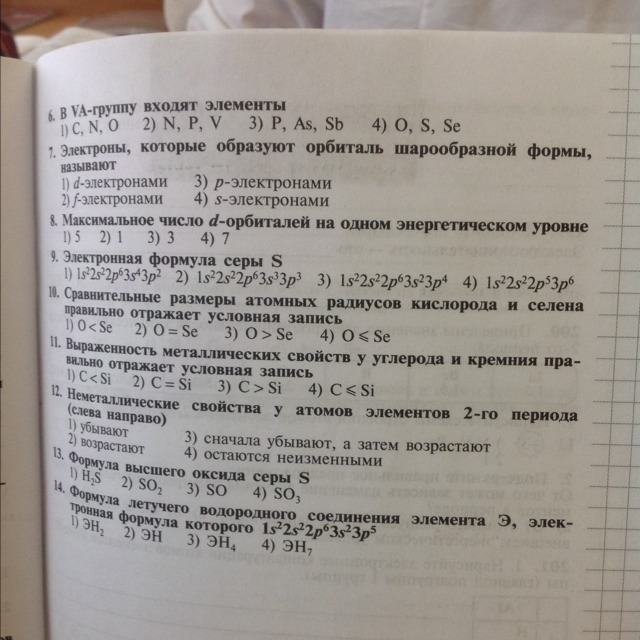 6. В VA-группу входят элементы
1) C, N, O 2) N, P, V 3) P, As, Sb 4) O, S, Se
7. Электроны, которые образуют орбиталь шарообразной формы,
называют
1) d-электронами 3) p-электронами
2) f-электронами 4) s-электронами
8. Максимальное число d-орбиталей на одном энергетическом уровне
1) 5 2) 1 3) 3 4) 7
9. Электронная формула серы S
1) 1s²2s²2p⁶3s⁴3p² 2) 1s²2s²2p⁶3s³3p³ 3) 1s²2s²2p⁶3s²3p⁴ 4) 1s²2s²2p⁵3p⁶
10. Сравнительные размеры атомных радиусов кислорода и селена
правильно отражает условная запись
1) O < Se 2) O = Se 3) O > Se 4) O ⩽ Se
11. Выраженность металлических свойств у углерода и кремния пра-
вильно отражает условная запись
1) C < Si 2) C = Si 3) C > Si 4) C ⩽ Si
12. Неметаллические свойства у атомов элементов 2-го периода
(слева направо)
1) убывают 3) сначала убывают, а затем возрастают
2) возрастают 4) остаются неизменными
13. Формула высшего оксида серы S
1) H₂S 2) SO₂ 3) SO 4) SO₃
14. Формула летучего водородного соединения элемента Э, элек-
тронная формула которого 1s²2s²2p⁶3s²3p⁵
1) ЭН₂ 2) ЭН 3) ЭН₄ 4) ЭН₇